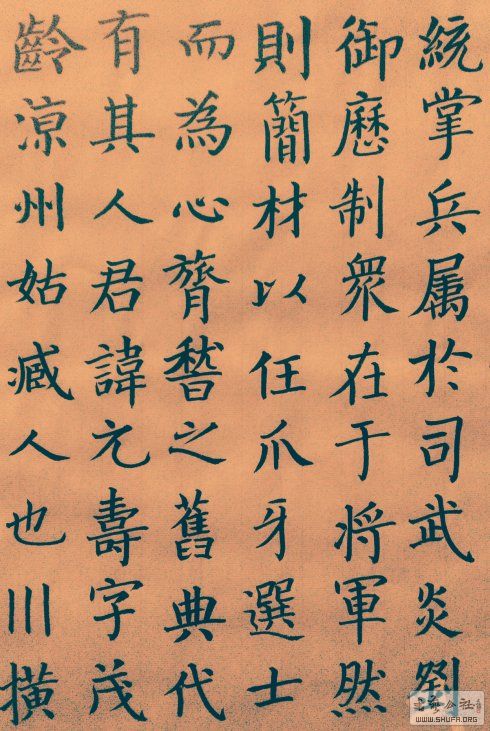 統掌兵属於司武炎劉
御歷制眾在于將軍然
則簡材以任爪牙選士
而為心膂稽之舊典代
有其人君諱元壽字茂
齡涼州姑臧人也川橫
WWW.SHUFA.ORG